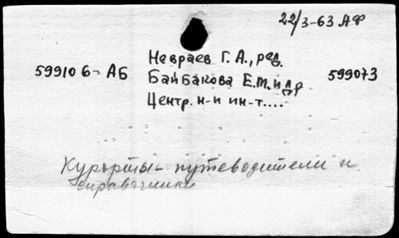 22/3-63 АФ
Невраев Г. А., ред.
599106-АБ Байбакова Е.М. и др 599073
Центр. н-и ин-т....
Курорты - путеводители и
справочники